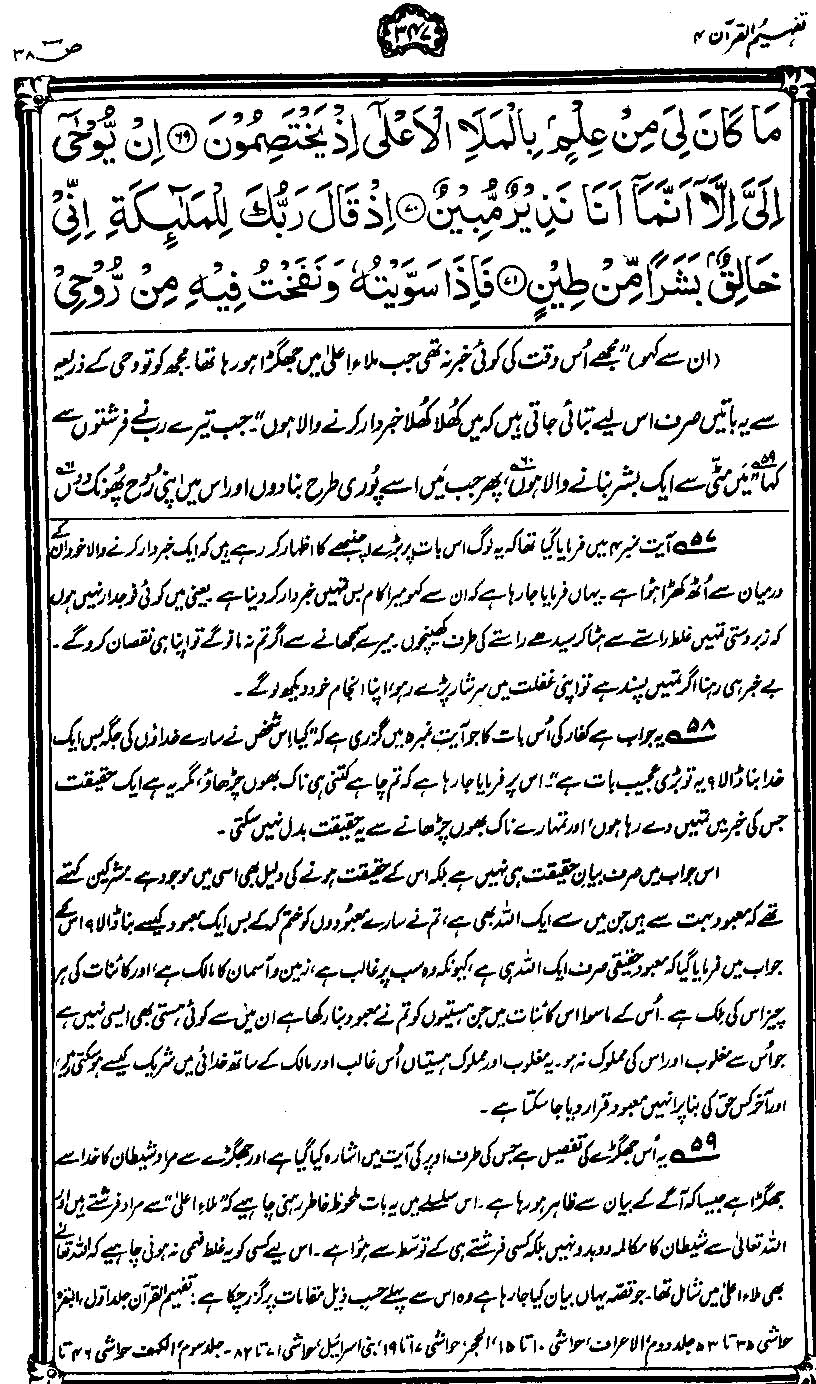 تفہیم القرآن ۴
۳۴۷
ص ۳۸
مَا كَانَ لِيَ مِنْ عِلْمٍۭ بِالْمَلَاِ الْاَعْلٰٓى اِذْ يَخْتَصِمُوْنَ ﴿۶۹﴾ اِنْ يُّوْحٰٓى
اِلَيَّ اِلَّآ اَنَّمَآ اَنَا نَذِيْرٌ مُّبِيْنٌ ﴿۷۰﴾ اِذْ قَالَ رَبُّكَ لِلْمَلٰٓئِكَةِ اِنِّيْ
خَالِقٌۢ بَشَرًا مِّنْ طِيْنٍ ﴿۷۱﴾ فَاِذَا سَوَّيْتُهٗ وَنَفَخْتُ فِيْهِ مِنْ رُّوْحِيْ
(ان سے کہو) ”مجھے اُس وقت کی کوئی خبر نہ تھی جب ملاءِ اعلیٰ میں جھگڑا ہو رہا تھا۔ مجھ کو تو وحی کے ذریعہ
سے یہ باتیں صرف اس لیے بتائی جاتی ہیں کہ میں کھلا کھلا خبردار کرنے والا ہوں“۔ جب تیرے رب نے فرشتوں سے
کہا۵۹ ”میں مٹی سے ایک بشر بنانے والا ہوں۶۰، پھر جب میں اسے پوری طرح بنا دوں اور اس میں اپنی رُوح پھونک دوں۶۱
۵۷ آیت نمبر ۴ میں فرمایا گیا تھا کہ یہ لوگ اس بات پر بڑے اچنبھے کا اظہار کر رہے ہیں کہ ایک خبردار کرنے والا خود ان کے
درمیان سے اُٹھ کھڑا ہوا ہے۔ یہاں فرمایا جا رہا ہے کہ ان سے کہو میرا کام بس تمہیں خبردار کر دینا ہے۔ یعنی میں کوئی فوجدار نہیں ہوں
کہ زبردستی تمہیں غلط راستے سے ہٹا کر سیدھے راستے کی طرف کھینچوں۔ میرے سمجھانے سے اگر تم نہ مانو گے تو اپنا ہی نقصان کرو گے۔
بے خبر ہی رہنا اگر تمہیں پسند ہے تو اپنی غفلت میں سرشار پڑے رہو، اپنا انجام خود دیکھ لو گے۔
۵۸ یہ جواب ہے کفار کی اُس بات کا جو آیت نمبر ۵ میں گزری ہے کہ ”کیا اس شخص نے سارے خداؤں کی جگہ بس ایک
خدا بنا ڈالا؟ یہ تو بڑی عجیب بات ہے“۔ اس پر فرمایا جا رہا ہے کہ تم چاہے کتنی ہی ناک بھوں چڑھاؤ، مگر یہ ہے ایک حقیقت
جس کی خبر میں تمہیں دے رہا ہوں، اور تمہارے ناک بھوں چڑھانے سے یہ حقیقت بدل نہیں سکتی۔
اس جواب میں صرف بیانِ حقیقت ہی نہیں ہے بلکہ اس کے حقیقت ہونے کی دلیل بھی اسی میں موجود ہے۔ مشرکین کہتے
تھے کہ معبود بہت سے ہیں جن میں سے ایک اللہ بھی ہے، تم نے سارے معبودوں کو ختم کر کے بس ایک معبود کیسے بنا ڈالا؟ اس کے
جواب میں فرمایا گیا کہ معبودِ حقیقی صرف ایک اللہ ہی ہے، کیونکہ وہ سب پر غالب ہے، زمین و آسمان کا مالک ہے، اور کائنات کی ہر
چیز اس کی مِلک ہے۔ اُس کے ماسوا اس کائنات میں جن ہستیوں کو تم نے معبود بنا رکھا ہے ان میں سے کوئی ہستی بھی ایسی نہیں ہے
جو اُس سے مغلوب اور اس کی مملوک نہ ہو۔ یہ مغلوب اور مملوک ہستیاں اُس غالب اور مالک کے ساتھ خدائی میں شریک کیسے ہو سکتی ہیں،
اور آخر کس حق کی بنا پر انہیں معبود قرار دیا جا سکتا ہے۔
۵۹ یہ اُس جھگڑے کی تفصیل ہے جس کی طرف اوپر کی آیت میں اشارہ کیا گیا ہے اور جھگڑے سے مراد شیطان کا خدا سے
جھگڑا ہے جیسا کہ آگے کے بیان سے ظاہر ہو رہا ہے۔ اس سلسلے میں یہ بات ملحوظِ خاطر رہنی چاہیے کہ ”ملاءِ اعلیٰ“ سے مراد فرشتے ہیں اور
اللہ تعالیٰ سے شیطان کا مکالمہ دو بدو نہیں بلکہ کسی فرشتے ہی کے توسّط سے ہوا ہے۔ اس لیے کسی کو یہ غلط فہمی نہ ہونی چاہیے کہ اللہ تعالیٰ
بھی ملاءِ اعلیٰ میں شامل تھا۔ جو قصّہ یہاں بیان کیا جا رہا ہے وہ اس سے پہلے حسبِ ذیل مقامات پر گزر چکا ہے: تفہیم القرآن جلد اوّل، البقرہ
حواشی ۳۵ تا ۵۳ جلد دوم، الاعراف، حواشی ۱۰ تا ۱۵، الحجر، حواشی ۱۷ تا ۱۹، بنی اسرائیل، حواشی ۷۱ تا ۸۲۔ جلد سوم، الکہف حواشی ۴۶ تا